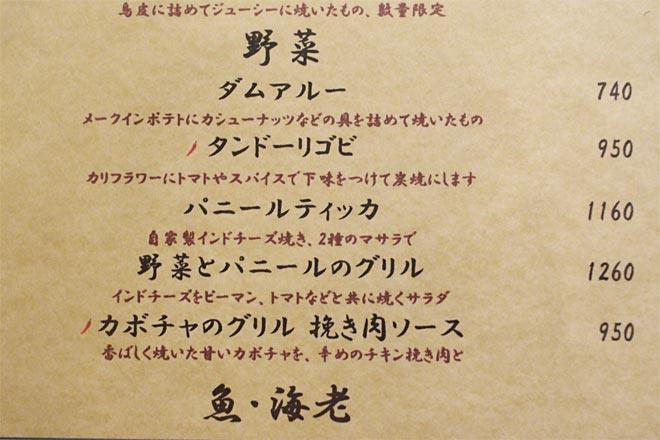 鳥皮に詰めてジューシーに焼いたもの、数量限定
野菜
ダムアルー 740
メークインポテトにカシューナッツなどの具を詰めて焼いたもの
タンドーリゴビ 950
カリフラワーにトマトやスパイスで下味をつけて炭焼にします
パニールティッカ 1160
自家製インドチーズ焼き、2種のマサラで
野菜とパニールのグリル 1260
インドチーズをピーマン、トマトなどと共に焼くサラダ
カボチャのグリル 挽き肉ソース 950
香ばしく焼いた甘いカボチャを、辛めのチキン挽き肉と
魚・海老